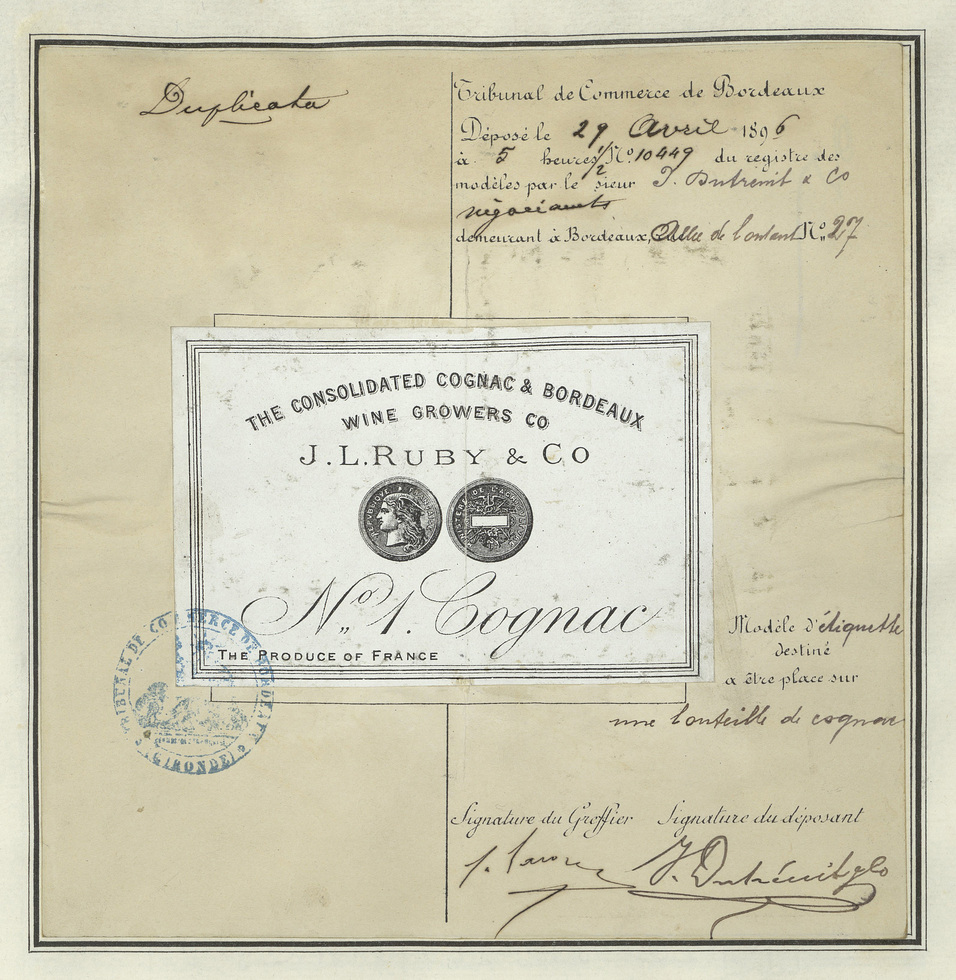 Duplicata
Tribunal de Commerce de Bordeaux
Déposé le 29 Avril 1896
à 5 heures 1/2 No. 10449 du registre des
modèles par le sieur J. Dutrénit & Co
négociants
demeurant à Bordeaux, No. 27
THE CONSOLIDATED COGNAC & BORDEAUX
WINE GROWERS CO
J. L. RUBY & CO
No 1. Cognac
THE PRODUCE OF FRANCE
TRIBUNAL DE COMMERCE DE BORDEAUX
(GIRONDE)
Modèle d'étiquette
destiné
a être place sur
une bouteille de cognac
Signature du Greffier Signature du déposant
J. Dutrénit & Co